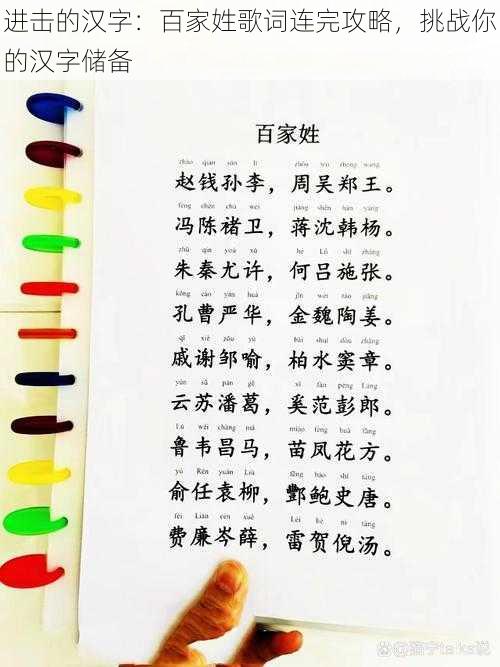 进击的汉字：百家姓歌词连完攻略，挑战你
的汉字储备
百家姓
zhào qián sūn lǐ zhōu wú zhèng wáng
赵钱孙李，周吴郑王。
féng chén chǔ wèi jiǎng shěn hán yáng
冯陈褚卫，蒋沈韩杨。
zhū qín yóu xǔ hé Lǚ shī zhāng
朱秦尤许，何吕施张。
kǒng cáo yán huà jīn wèi táo jiāng
孔曹严华，金魏陶姜。
qī xiè zōu yù bǎi shuǐ dòu zhāng
戚谢邹喻，柏水窦章。
yún sū pān gě xī fàn péng Láng
云苏潘葛，奚范彭郎。
Lǔ wéi chāng mǎ miáo fèng huā fāng
鲁韦昌马，苗凤花方。
yú Rén yuán Liǔ fēng bào shǐ táng
俞任袁柳，酆鲍史唐。
fèi Lián cén xuē Léi hè ní tāng
费廉岑薛，雷贺倪汤。